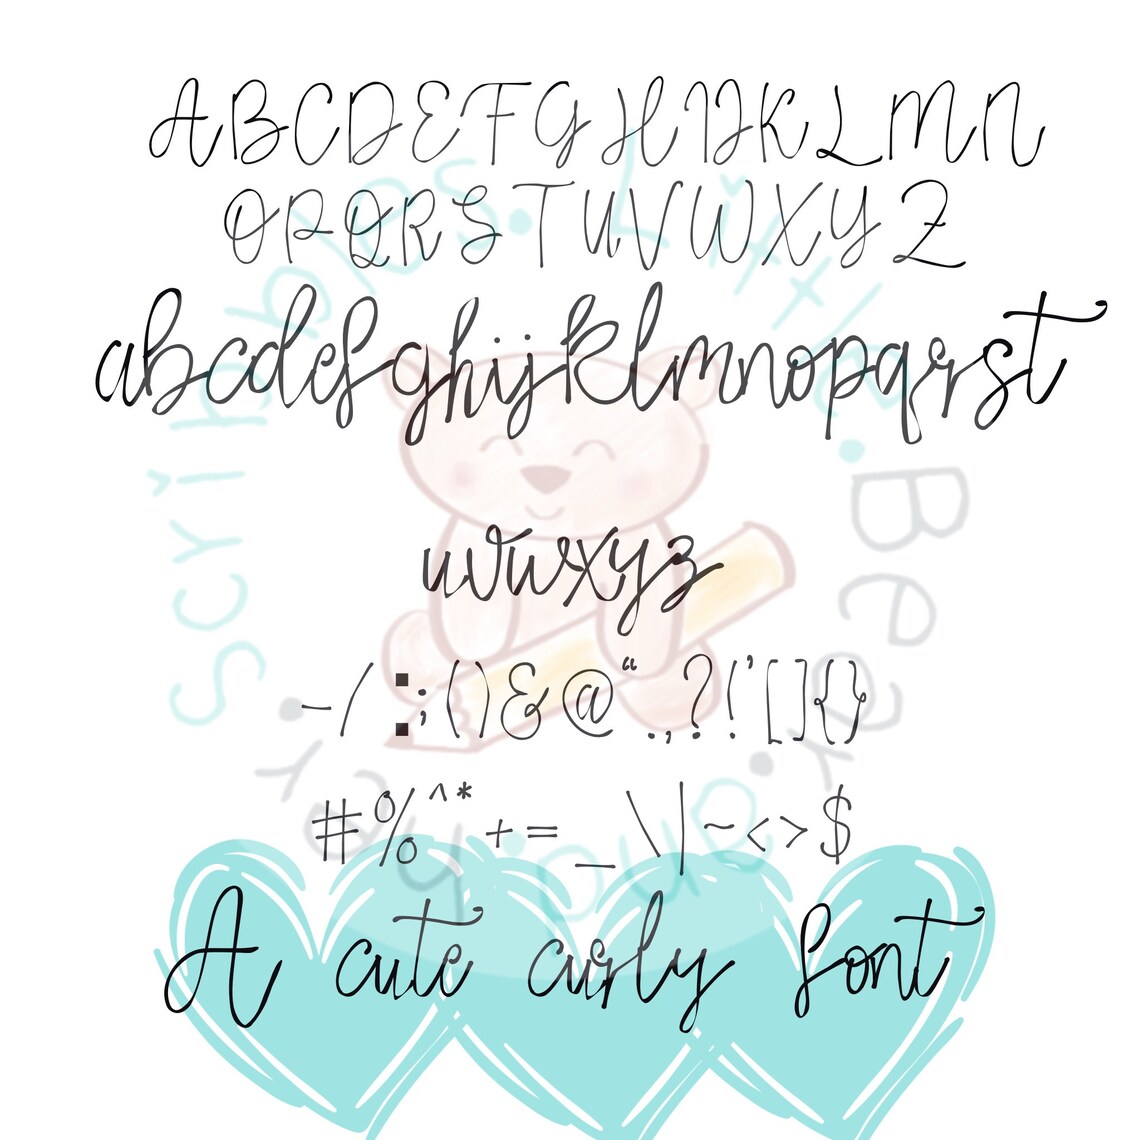 ABCDEFGHIJKLMN
OPQRSTUVWXYZ
abcdefghijklmnopqrst
uvwxyz
-/:;()&@“.,?!'[]{}
#%^*+=_\|~<>$
A cute curly font
Little.Bear.and